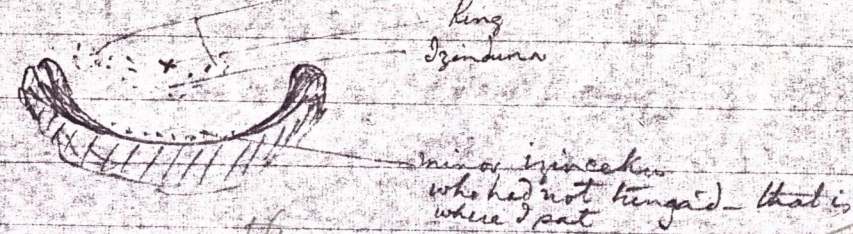 King
Izinduna
minor izincekus
who had not tunga'd – that is
where I sat